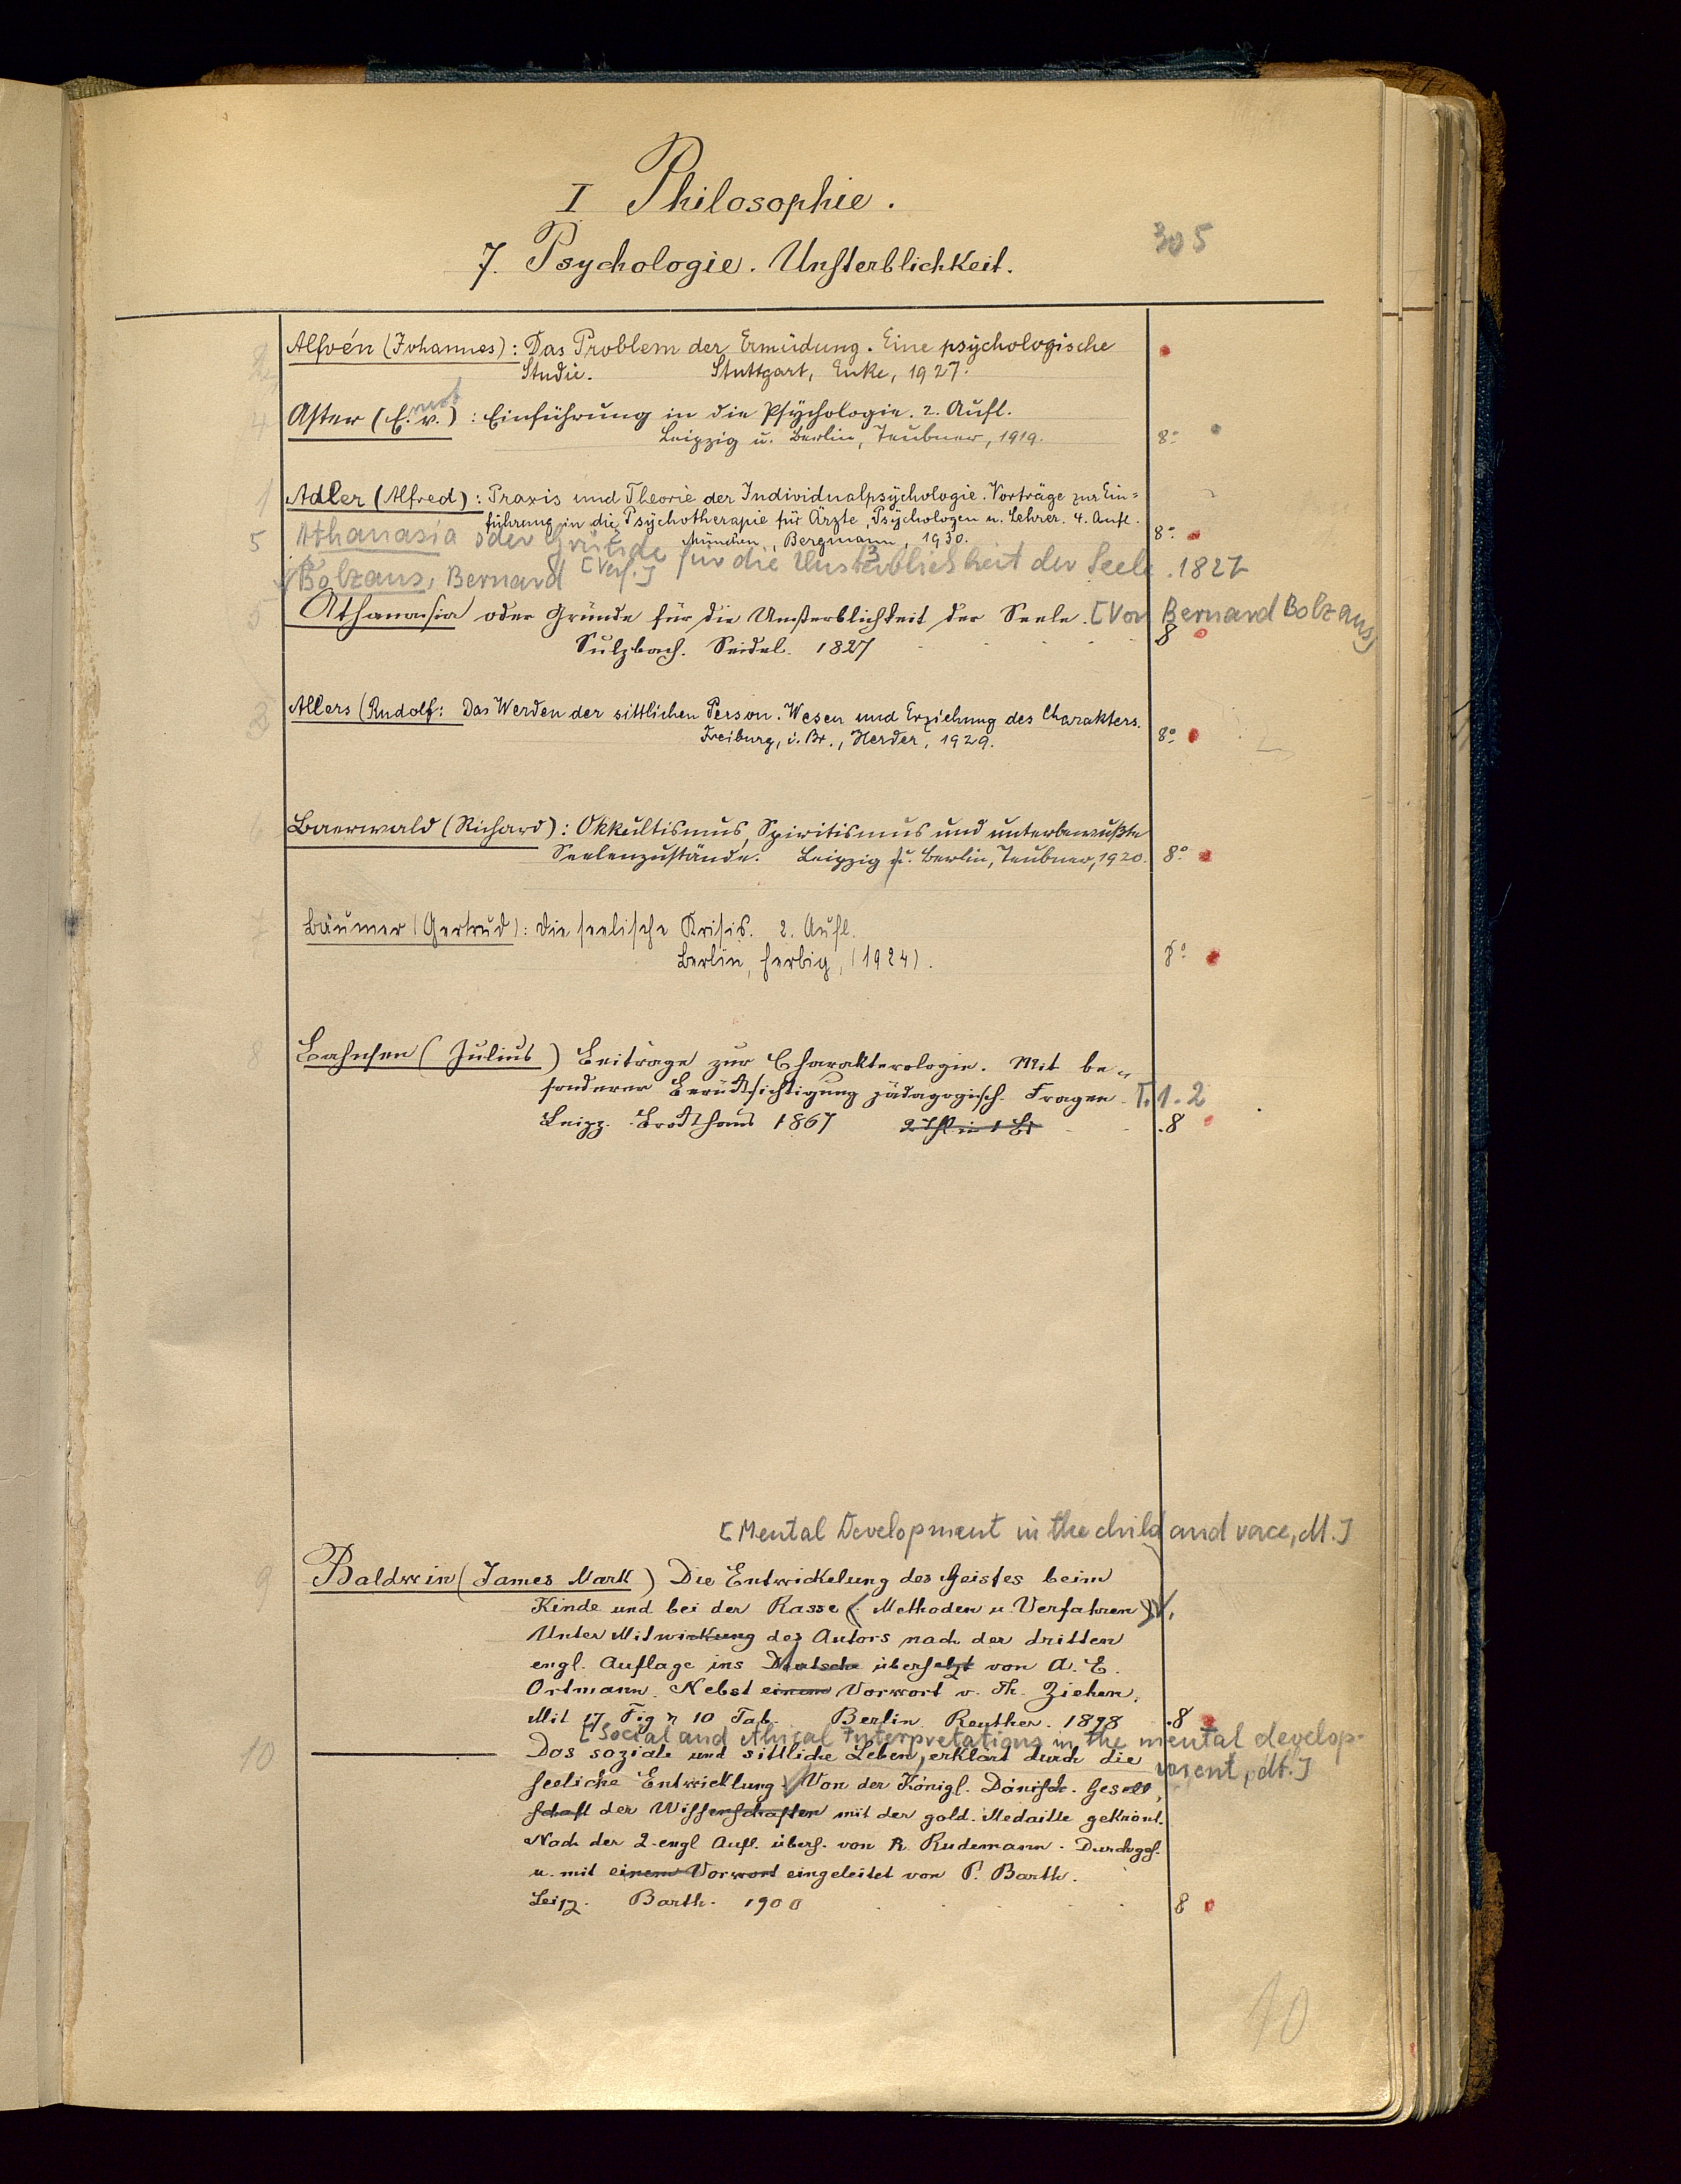 I Philosophie.
305
7. Psychologie. Unsterblichkeit.
2 Alfvén (Johannes): Das Problem der Ermüdung. Eine psychologische
Studie. Stuttgart, Enke, 1927.
4 Aster (E. v.): Einführung in die Psychologie. 2. Aufl.
Leipzig u. Berlin, Teubner, 1919. 8°
1 Adler (Alfred): Praxis und Theorie der Individualpsychologie. Vorträge zur Ein=
führung in die Psychotherapie für Ärzte, Psychologen u. Lehrer. 4. Aufl.
München, Bergmann, 1930. 8°
5 Athanasia oder Gründe für die Unsterblichkeit der Seele. 1827
Bolzans, Bernard [Verf.]
5 Athanasia oder Gründe für die Unsterblichkeit der Seele. [Von Bernard Bolzans]
Sulzbach. Seidel. 1827 8
3 Allers (Rudolf: Das Werden der sittlichen Person. Wesen und Erziehung des Charakters.
Freiburg, i. Br., Herder, 1929. 8°
6 Baerwald (Richard): Okkultismus, Spiritismus und unterbewußte
Seelenzustände. Leipzig u. Berlin, Teubner, 1920. 8°
7 Bäumer (Gertrud): Die seelische Krisis. 2. Aufl.
Berlin, Herbig, (1924). 8°
8 Bahnsen (Julius) Beiträge zur Charakterologie. Mit be-
sonderer Berücksichtigung pädagogisch. Fragen. T. 1.2
Leipz. Brockhaus 1867 2 Thl in 1 Bd .8
[Mental Development in the child and race, dt.]
9 Baldwin (James Mark) Die Entwickelung des Geistes beim
Kinde und bei der Rasse (Methoden u. Verfahren).
Unter Mitwirkung des Autors nach der dritten
engl. Auflage ins Deutsche übersetzt von A. E.
Ortmann. Nebst einem Vorwort v. Th. Ziehen.
Mit 17 Fig u 10 Tab. Berlin Reuther. 1898 .8
[Social and ethical Interpretations in the mental develop-
ment, dt.]
10 Das soziale und sittliche Leben, erklärt durch die
seeliche Entwicklung. Von der Königl. Dänisch. Gesell
schaft der Wissenschaften mit der gold. Medaille gekrönt.
Nach der 2. engl Aufl. übers. von R. Rudemann. Durchges.
u. mit einem Vorwort eingeleitet von P. Barth.
Leipz. Barth. 1900 8
10